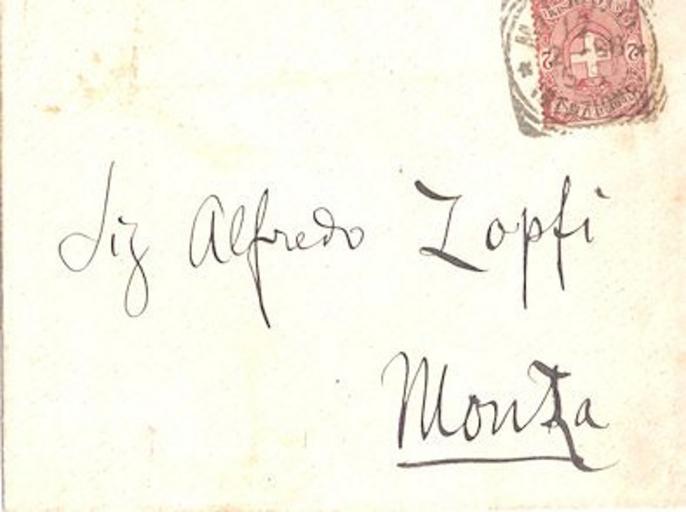 2 2
Sig Alfredo Zopfi
Monza